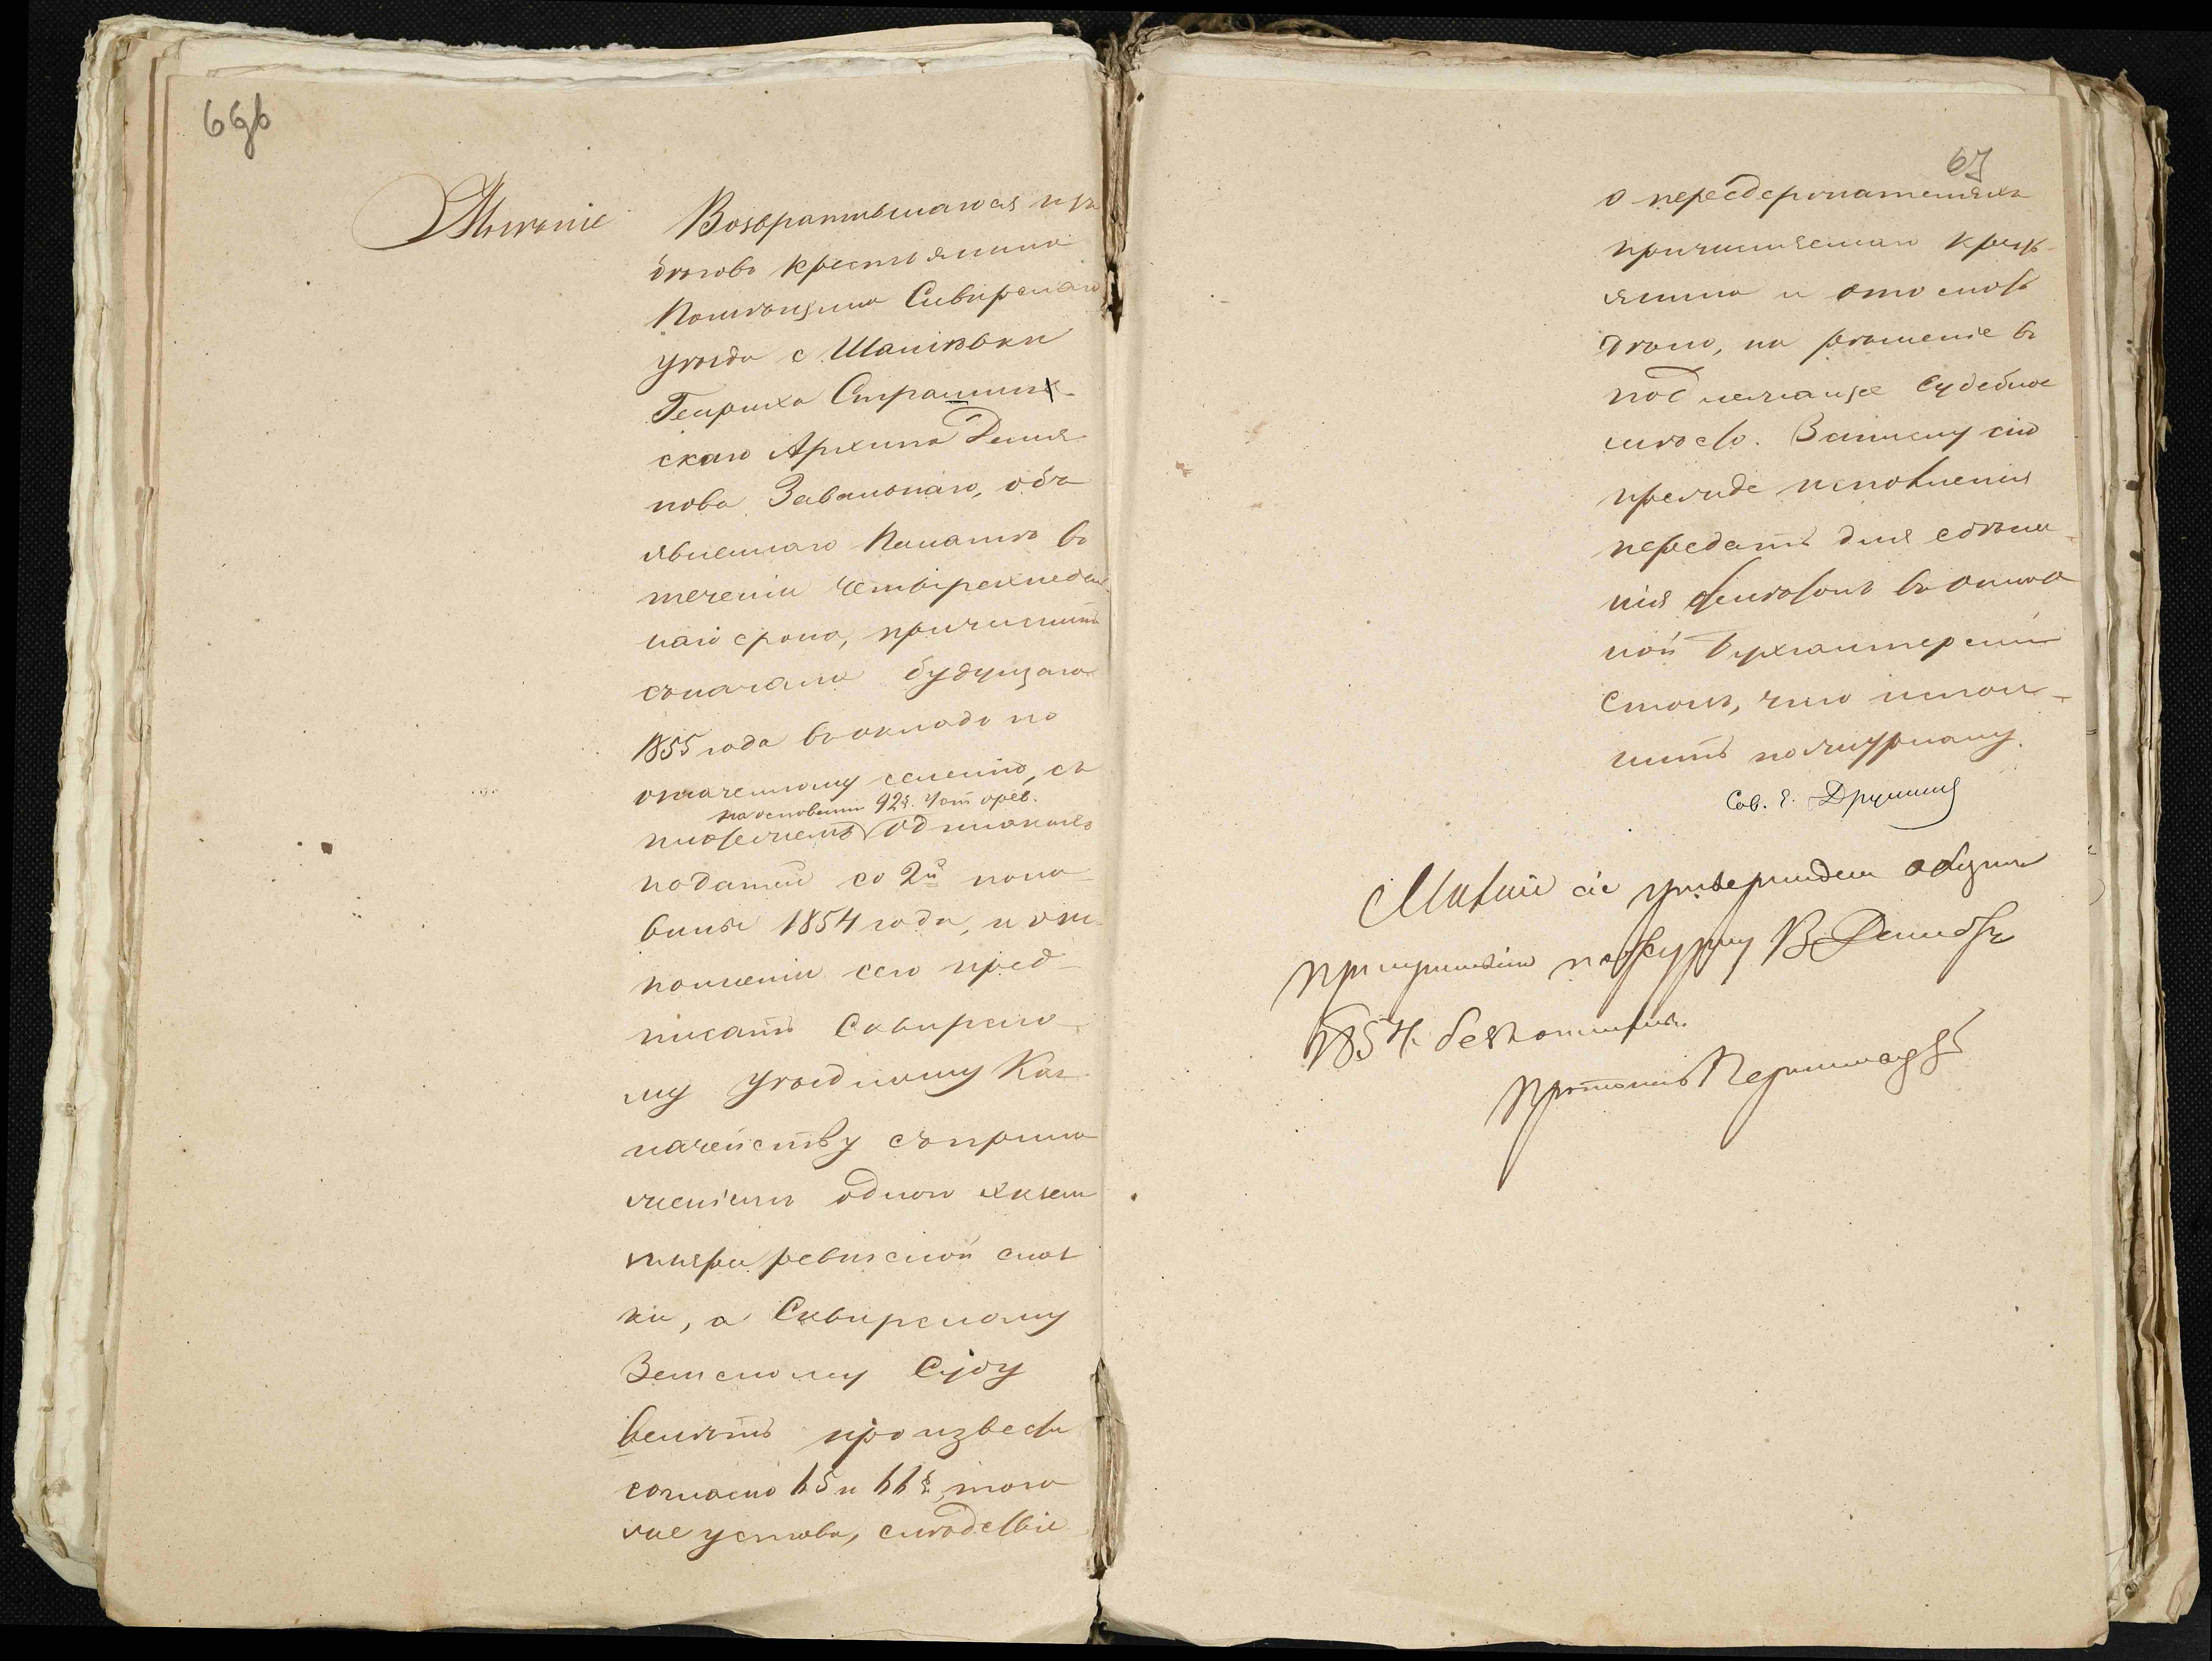 66об
Мнѣніе
Возвратившагося изъ
бѣговъ крестьянина
Помѣщика Сквирскаго
уѣзда с. Шаліевки
Генриха Страшин-
скаго Архипа Демья
нова Завальнаго, объ
явленнаго Палатѣ въ
теченіи четырехнедѣль
наго срока, причислить
съ начала будущаго
1855 года въ окладъ по
означенному селенію, съ
на основаніи 92 §. Уст. о рев.
платежемъ однакожъ
податей со 2й поло
вины 1854 года, и о ис
полненіи сего пред-
писать Сквирско
му Уѣздному Каз
начейству съ прило
женіемъ одного экзем
пляра ревизской сказ
ки, а Сквирскому
Земскому Суду
велѣть произвесть
согласно 65 и 66 § того
же устава, слѣдствіе
67
о передержателяхъ
причисляемаго кресть
янина и отослать
дѣло, на рѣшеніе въ
подлежащее Судебное
мѣсто. Записку сію
прежде исполненія
передать для сдѣла-
нія въ оклад
ной Бухгалтерскій
Столъ, что испол-
нить по журналу.
Сов. Г.
Мнѣніе сіе утверждено
по журналу Декабря
1854.